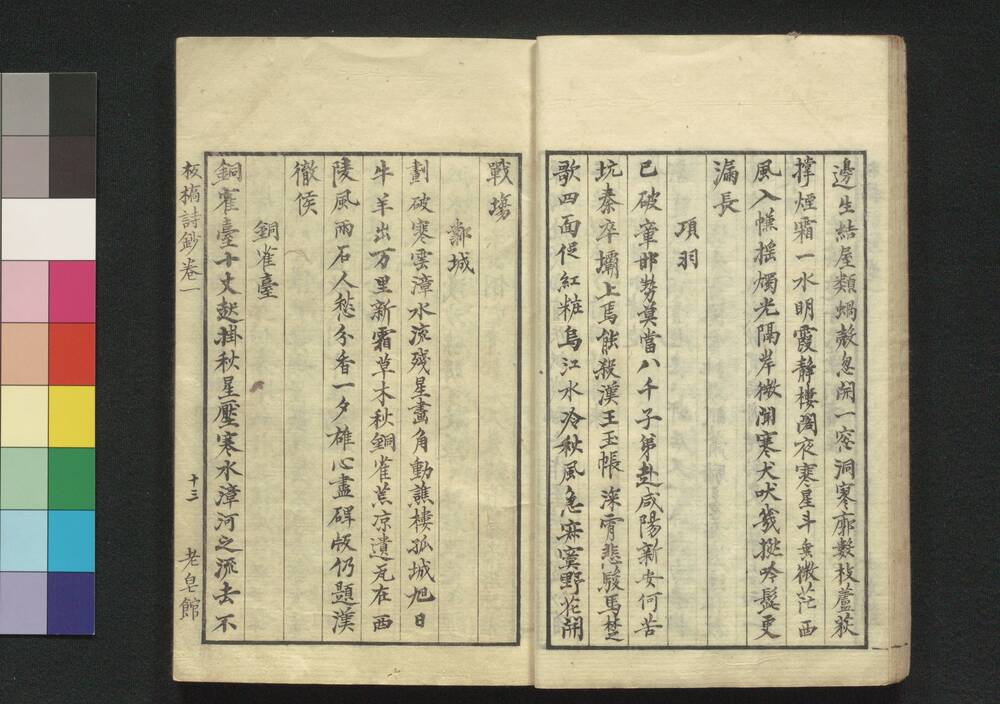 邊生結屋類蝸殼忽開一窓洞寥廓數枝蘆荻
撐煙霜一水明霞靜樓閣夜寒星斗垂微茫西
風入幙摇燭光隔岸微聞寒犬吠幾挑吟髭更
漏長
項羽
已破章邯勢莫當八千子弟赴咸陽新安何苦
坑秦卒壩上焉能殺漢王玉帳深宵悲駿馬楚
歌四面促紅粧烏江水冷秋風急寂寞野花開
戰塲
鄴城
劃破寒雲漳水流殘星畫角動譙樓孤城旭日
牛羊出万里新霜草木秋銅雀荒凉遺瓦在西
陵風雨石人愁分香一夕雄心盡碑版仍題漢
徹侯
銅雀臺
銅雀臺十丈起掛秋星壓寒水漳河之流去不
板橋詩鈔卷一
十三
老皂館